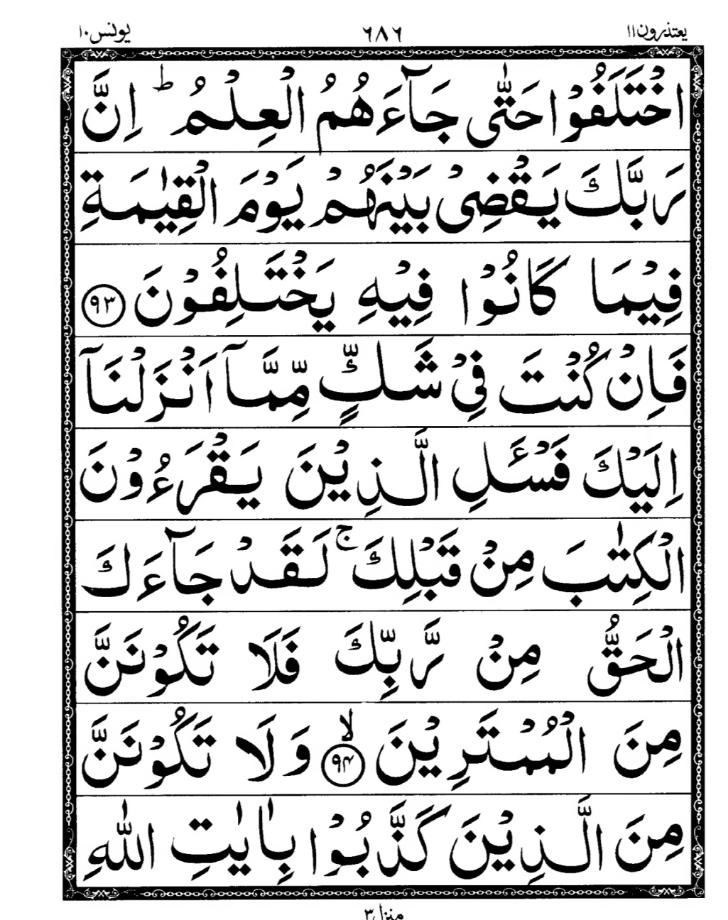 يعتذرون١١ ٦٨٦ يونس١٠
اخْتَلَفُوْا حَتّٰى جَآءَهُمُ الْعِلْمُ ؕ اِنَّ
رَبَّكَ يَقْضِىْ بَيْنَهُمْ يَوْمَ الْقِيٰمَةِ
فِيْمَا كَانُوْا فِيْهِ يَخْتَلِفُوْنَ ﴿٩٣﴾
فَاِنْ كُنْتَ فِىْ شَكٍّ مِّمَّآ اَنْزَلْنَآ
اِلَيْكَ فَسْـَٔلِ الَّذِيْنَ يَقْرَءُوْنَ
الْكِتٰبَ مِنْ قَبْلِكَ ۚ لَقَدْ جَآءَكَ
الْحَقُّ مِنْ رَّبِّكَ فَلَا تَكُوْنَنَّ
مِنَ الْمُمْتَرِيْنَ ۙ﴿٩٤﴾ وَلَا تَكُوْنَنَّ
مِنَ الَّذِيْنَ كَذَّبُوْا بِاٰيٰتِ اللّٰهِ
منزل٣